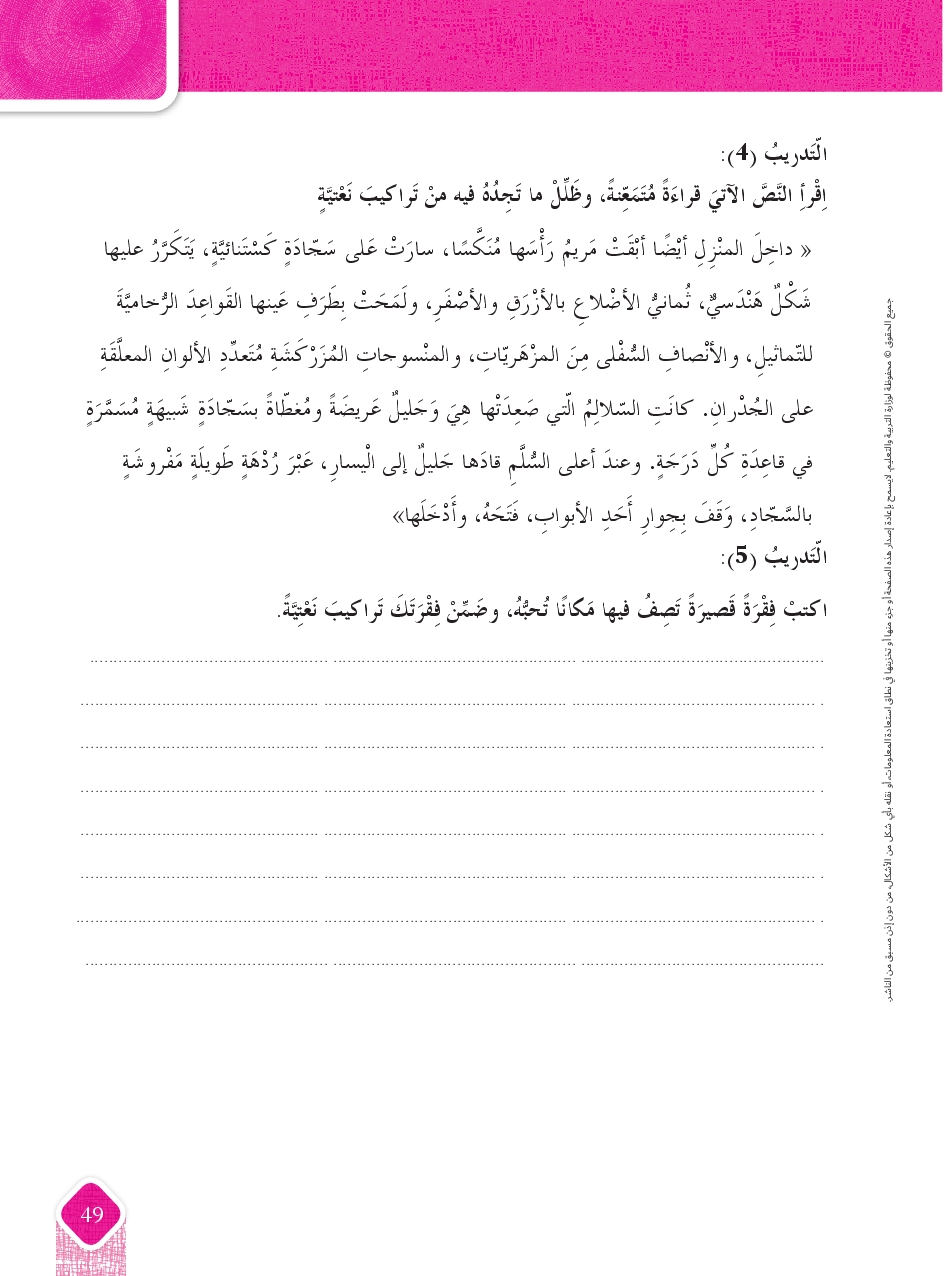 الّتَدريبُ (4):
اِقْرأِ النَّصَّ الآتيَ قراءَةً مُتَمَعِّنةً، وظَلِّلْ ما تَجِدُهُ فيه منْ تَراكيبَ نَعْتِيَّةٍ
« داخِلَ المنْزِلِ أيْضًا أبْقَتْ مَريمُ رَأْسَها مُنَكَّسًا، سارَتْ عَلى سَجّادَةٍ كَسْتَنائيَّةٍ، يَتَكَرَّرُ عليها
شَكْلٌ هَنْدَسيٌّ، ثُمانيُّ الأضْلاعِ بالأزْرَقِ والأصْفَرِ، ولَمَحَتْ بِطَرَفِ عَينها القَواعِدَ الرُّخاميَّةَ
للتّماثيلِ، والأنْصافِ السُّفْلى مِنَ المزْهَريّاتِ، والمنْسوحاتِ المُزَرْكَشَةِ مُتَعدِّدِ الألوانِ المعلَّقَةِ
على الجُدْرانِ. كانَتِ السّلالِمُ الّتي صَعِدَتْها هِيَ وَجَليلٌ عَريضَةً ومُغطّاةً بسَجّادَةٍ شَبيهَةٍ مُسَمَّرَةٍ
في قاعِدَةِ كُلِّ دَرَجَةٍ. وعندَ أعلى السُّلَّمِ قادَها جَليلٌ إلى الْيسارِ، عَبْرَ رُدْهَةٍ طَويلَةٍ مَفْروشَةٍ
بالسَّجّادِ، وَقَفَ بِجِوارِ أَحَدِ الأبوابِ، فَتَحَهُ، وأَدْخَلَها»
الّتَدريبُ (5):
اكتبْ فِقْرَةً قَصيرَةً تَصِفُ فيها مَكانًا تُحبُّهُ، وضَمِّنْ فِقْرَتَكَ تَراكيبَ نَعْتِيَّةً.
جميع الحقوق © محفوظة لوزارة التربية والتعليم. لايسمح بإعادة إصدار هذه الصفحة أو جزء منها أو تخزينها في نطاق استعادة المعلومات، أو نقله بأي شكل من الأشكال، من دون إذن مسبق من الناشر.
49